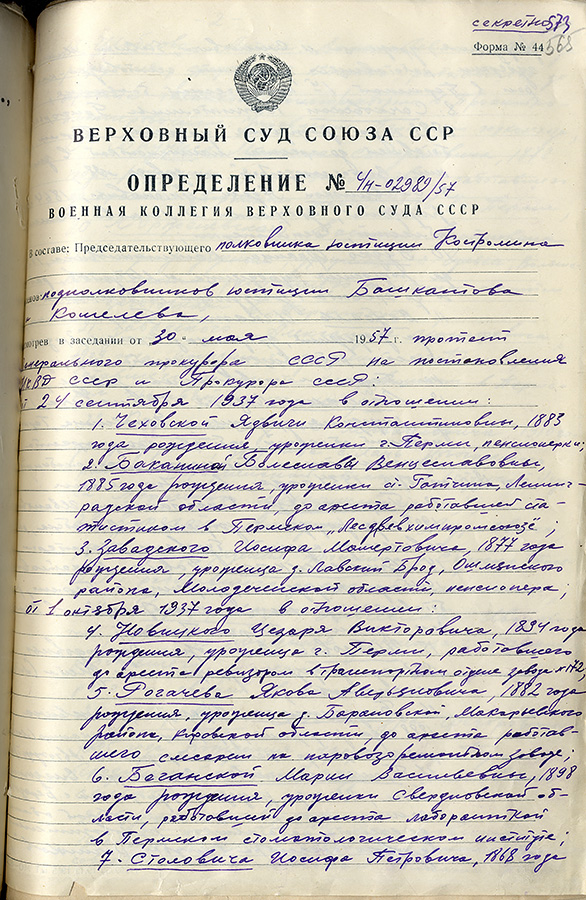 секретно 573
Форма № 44 565
ВЕРХОВНЫЙ СУД СОЮЗА ССР
ОПРЕДЕЛЕНИЕ № 4н-02989/57
ВОЕННАЯ КОЛЛЕГИЯ ВЕРХОВНОГО СУДА СССР
В составе: Председательствующего полковника юстиции Костромина
подполковников юстиции Башкатова
Кошелева,
в заседании от 30 мая 1957 г. протест
прокурора СССР на постановления
СССР и Прокурора СССР:
24 сентября 1937 года в отношении:
1. Чеховской Ядвиги Константиновны, 1883
года рождения, уроженки г. Перми, пенсионерки;
2. Баканиной Болеславы Венцеславовны,
1885 года рождения, уроженки ст. Гатчина, Ленинг-
радской области, до ареста работавшей ста-
тистиком в Пермском „Лесдревхимпромсоюзе";
3. Завадского Иосифа Матертовича, 1877 года
рождения, уроженца д. Лавский Брод, Ошмянского
района, Молодечненской области, пенсионера;
от 1 октября 1937 года в отношении:
4. Новицкого Цезаря Викторовича, 1894 года
рождения, уроженца г. Перми, работавшего
до ареста ревизором в транспортном отделе завода №172,
5. Рогачева Якова Аверьяновича, 1882 года
рождения, уроженца д. Барановской, Макарьевского
района, Кировской области, до ареста работав-
шего слесарем на паровозоремонтном заводе;
6. Баганской Марии Васильевны, 1898
года рождения, уроженки Свердловской об-
ласти, работавшей до ареста лаборанткой
в Пермском стоматологическом институте;
7. Столовича Иосифа Петровича, 1868 года